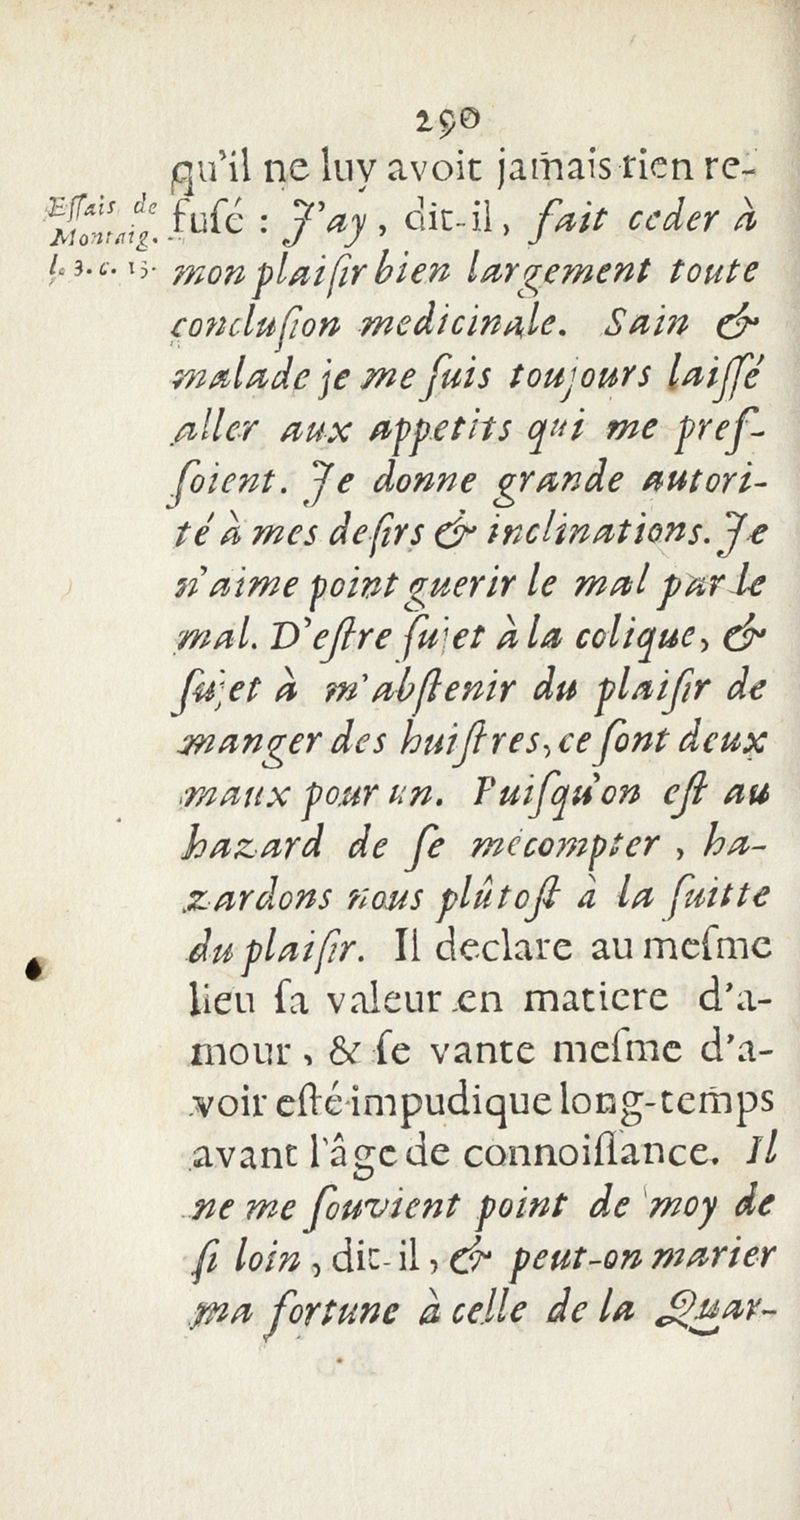 290
qu'il ne luy avoit jamais rien re-
Essais de
Montaig.
l. 3. c. 13.
fusé : J'ay, dit-il, fait ceder à
mon plaisir bien largement toute
conclusion medicinale. Sain &
malade je me suis toujours laissé
aller aux appetits qui me pres-
soient. Je donne grande autori-
té à mes desirs & inclinations. Je
n'aime point guerir le mal par le
mal. D'estre sujet à la colique, &
sujet à m'abstenir du plaisir de
manger des huistres, ce sont deux
maux pour un. Puisqu'on est au
hazard de se mécompter , ha-
zardons nous plûtost à la suitte
du plaisir. Il declare au mesme
lieu sa valeur en matiere d'a-
mour, & se vante mesme d'a-
voir esté impudique long-temps
avant l'âge de connoissance. Il
ne me souvient point de moy de
si loin, dit-il, & peut-on marier
ma fortune à celle de la Quar-